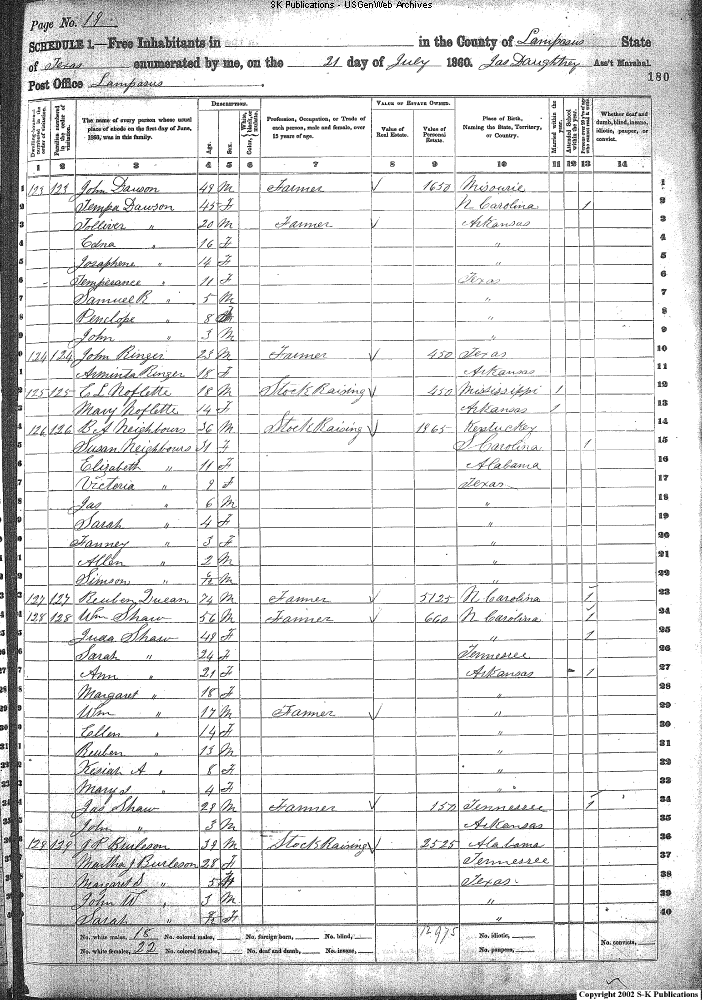 SK Publications - USGenWeb Archives
Page No. 19
SCHEDULE 1.—Free Inhabitants in in the County of Lampasus State
of Texas enumerated by me, on the 21 day of July 1860. Jas Daughtrey Ass't Marshal.
Post Office Lampasus 180
DESCRIPTION. VALUE OF ESTATE OWNED.
The name of every person whose usual place of abode on the first day of June, 1860, was in this family. Age. Sex. Profession, Occupation, or Trade of each person, male and female, over 15 years of age. Value of Real Estate. Value of Personal Estate. Place of Birth, Naming the State, Territory, or Country. Married within the year. Attended School within the year. Whether deaf and dumb, blind, insane, idiotic, pauper, or convict.
1 2 3 4 5 6 7 8 9 10 11 12 13 14
1 123 123 John Dawson 49 M Farmer √ 1650 Missourie 1
2 Tempa Dawson 45 F N Carolina 1 2
3 Tolliver " 20 M Farmer √ Arkansas 3
4 Edna " 16 F " 4
5 Josaphene " 14 F " 5
6 Temperance " 11 F Texas 6
7 Samuel R " 5 M " 7
8 Penelope " 8 F " 8
9 John " 3 M " 9
10 124 124 John Ringer 23 M Farmer 450 Texas 10
Arminta Ringer 18 F Arkansas 11
125 125 C L Noflette 18 M Stock Raising √ 450 Mississippi 1 12
Mary Noflette 14 F Arkansas 1 13
126 126 B S Neighbours 36 M Stock Raising √ 1865 Kentuckey 14
Susan Neighbours 31 F S Carolina 1 15
Elizabeth " 11 F Alabama 16
Victoria " 9 F Texas 17
Jas " 6 M " 18
Sarah " 4 F " 19
Fanney " 3 F 20
Allen " 2 M " 21
Simson " M " 22
127 127 Reuben Ducan 74 M Farmer √ 5125 N Carolina 1 23
128 128 Wm Shaw 56 M Farmer √ 660 N Carolina 1 24
Juda Shaw 49 F " 1 25
Sarah " 24 F Tennessee 26
Ann " 21 F Arkansas 1 27
Margaret " 18 F " 28
Wm " 17 M Farmer √ " 29
Ellen " 14 F " 30
Reuben " 13 M " 31
Kesiah A " 8 F " 32
Mary " 4 F " 33
Jas Shaw 28 M Farmer √ 150 Tennessee 1 34
John " 3 M Arkansas 35
128 129 J R Burleson 39 M Stock Raising √ 2525 Alabama 36
Martha J Burleson 28 F Tennessee 37
Margaret S " 5 F Texas 38
John W " 3 M " 39
Sarah " F " 40
No. white males, 18 No. colored males, No. foreign born, No. blind, 12975 No. idiotic, No. convicts,
No. white females, 22 No. colored females, No. deaf and dumb, No. insane, No. paupers,
Copyright 2002 S-K Publications